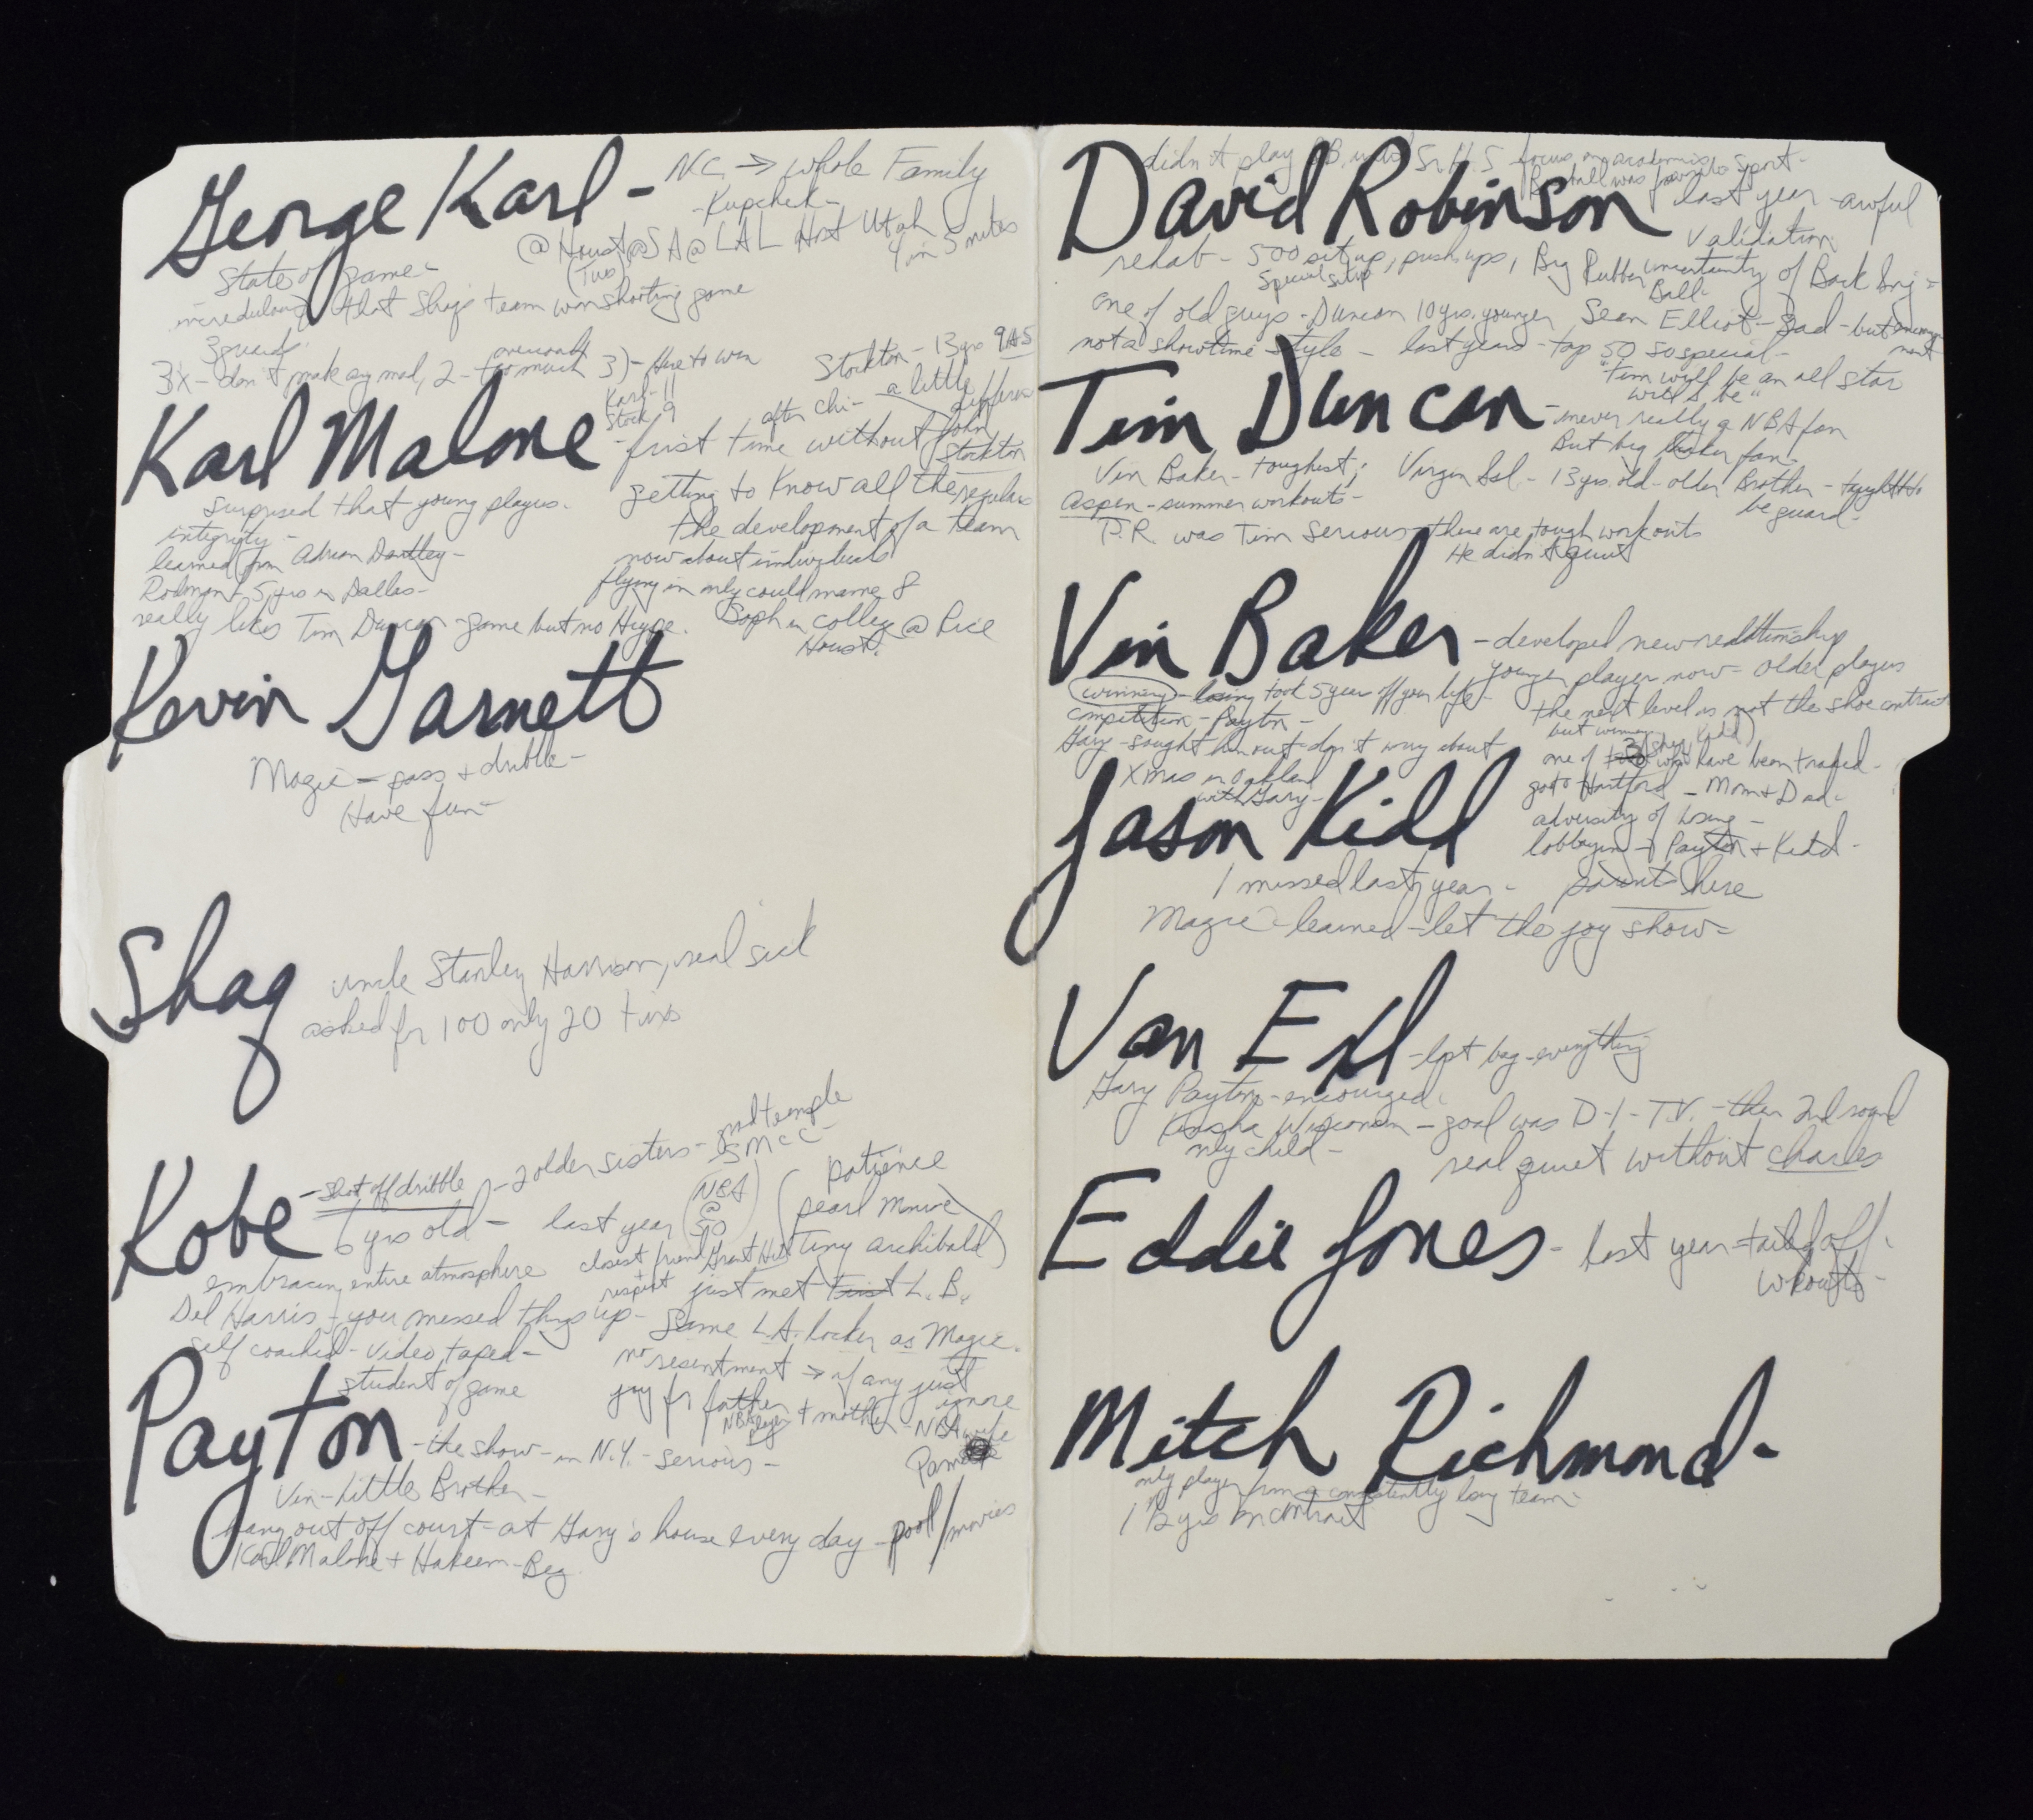 George Karl - NC → whole Family
- Kupchek -
@ Houst @ SA @ LAL Host Utah
(Two) 4 in 5 nites
State of game -
incredulous that Shaq's team won shooting game
3 guards
3X - don't make any mad, 2 - too much 3) - Have to win
Stockton - 13 yrs 9 AS
Karl - 11
Stock 9
after chi - a little different
Karl Malone - first time without John Stockton
getting to know all the regulars
surprised that young players.
integrity -
the development of a team
now about individuals
learned from Adrian Dantley -
flying in only could name 8
Rodman + 5 yrs in Dallas -
really likes Tim Duncan - game but no Hype. Soph in college @ Rice
Houst.
Kevin Garnett
Magic - pass + dribble -
Have fun -
Shaq
uncle Stanley Harrison, real sick
asked for 100 only 20 tixs
Kobe - shot off dribble - 2 older sisters - and temple
SMCC -
6 yrs old - last year (NBA @ 50)
(patience
pearl Monroe
Tiny archibald)
embracing entire atmosphere closest friend Grant Hill
respect just met L.B.
Del Harris - you messed things up - Same L.A. locker as Magic.
Self coached - video taped -
student of game
no resentment → if any just ignore
joy for father + mother - NBA wife
NBA player
Pam
Payton - the show - in N.Y. - serious -
Vin - Little Brother -
hang out off court - at Gary's house every day - pool/movies
Karl Malone + Hakeem - Big
David Robinson
didn't play B.B. until Sr. H.S focus on academics
Baseball was favorite sport -
last year - awful
Validation
rehab - 500 situp, pushups, Big Rubber Ball -
special situp
uncertainty of Back Inj -
one of old guys - Duncan 10 yrs. younger Sean Elliot - Sad - but
not a showtime style - last years - top 50 so special -
"Tim will be an all star
will be"
Tim Duncan - never really a NBA fan
But big Laker fan -
Vin Baker - toughest; Virgin Isl - 13 yrs. old - older Brother - taught to
be guard -
Aspen - summer workouts -
D.R. was Tim serious - these are tough workouts
He didn't quit
Vin Baker - developed new relationship
younger player now - older players
(winning) - losing took 5 year off your life -
the next level is not the shoe contract
but winning
competition - Payton -
Gary - sought him out - don't worry about
one of 3 (Shaq, Kidd) who have been traded -
Xmas in Oakland
with Gary -
go to Hartford - Mom + Dad -
adversity of losing -
lobbying of Payton + Kidd -
Jason Kidd
1 missed last year - parents here
Magic - learned - let the joy show -
Van Exl - lost bag - everything
Gary Payton - encouraged.
Kenosha Wisconsin - goal was D-1 - T.V. - then 2nd round
only child - real quiet without Charles
Eddie Jones - last year - tailed off.
wkouts -
Mitch Richmond -
only player from a consistently losing team -
1 1/2 yrs on contract